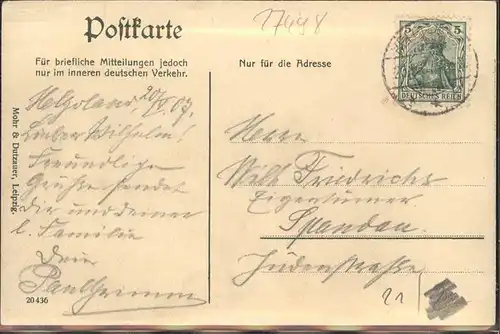 Postkarte
Für briefliche Mitteilungen jedoch
nur im inneren deutschen Verkehr.
Nur für die Adresse
5 5
DEUTSCHES REICH
Helgoland, 07.
Lieber Wilhelm!
Freundliche
Grüße sendet
Dir und deiner
l. Familie
Dein
Paul Grimm
Herrn
Wilh. Friedrichs
Eigentümer
Spandau
Jüdenstraße
21
Mohr & Dutzauer, Leipzig.
20436